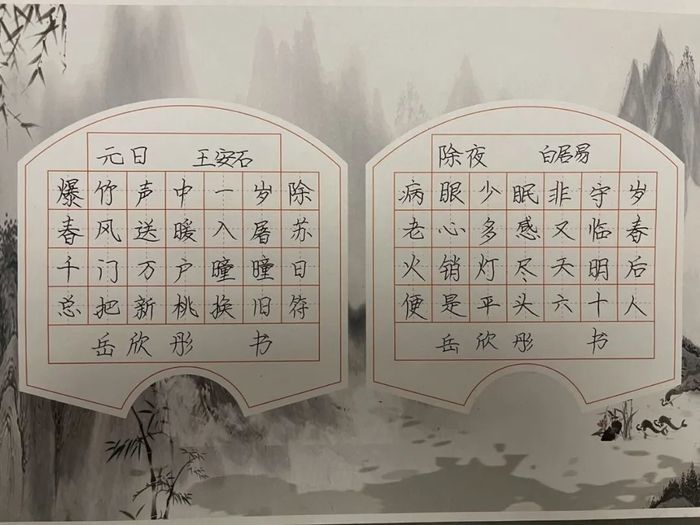 元日 王安石
爆竹声中一岁除
春风送暖入屠苏
千门万户曈曈日
总把新桃换旧符
岳欣彤 书
除夜 白居易
病眼少眠非守岁
老心多感又临春
火销灯尽天明后
便是平头六十人
岳欣彤 书